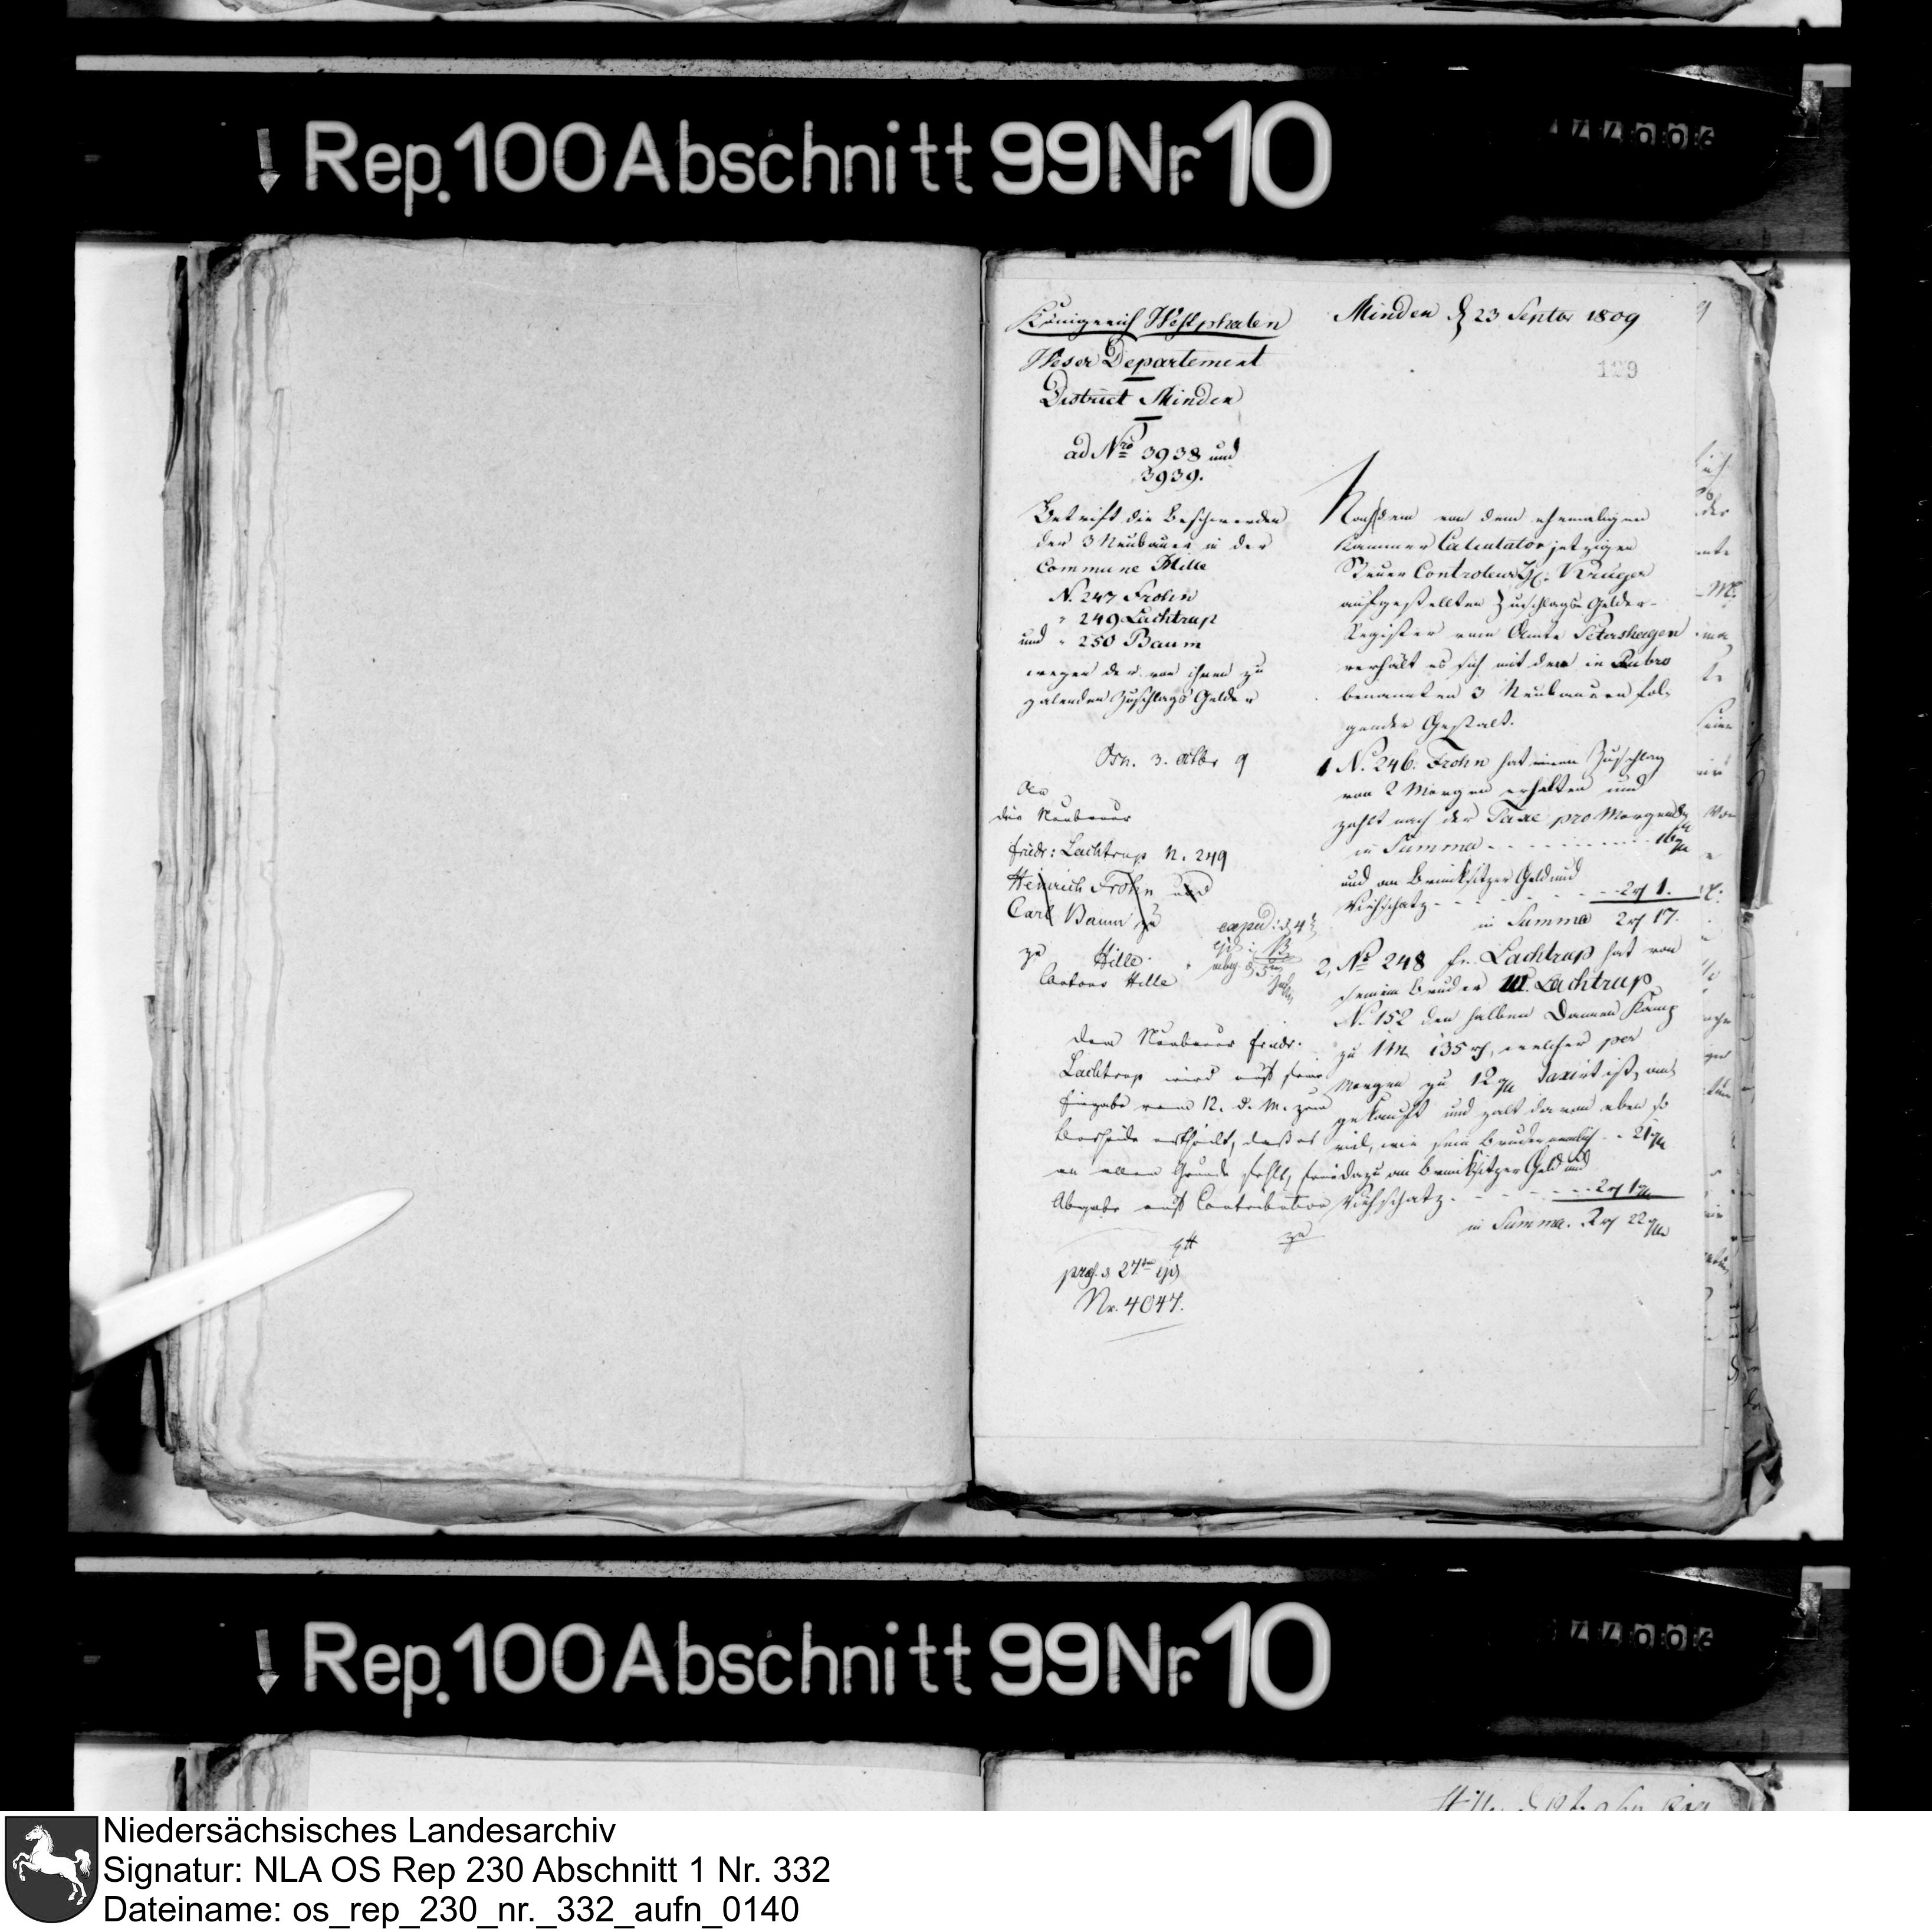 Rep. 100 Abschnitt 99 Nr. 10
Königreich Westphalen
Weser Departement
District Minden
ad Nro 3938 und
3939.
Betrift die Beschwerden
der 3 Neubauer in der
Commune Hille
N. 247 Frohn
" 249 Lachtrup
und " 250 Baum
wegen der von ihnen zu
zalenden Zuschlags Gelder
Osn. 3. Octbr 9
An
die Neubauer
Friedr: Lachtrup N. 249
Heinrich Frohn und
Carl Baum zu
zu Hille.
Cantons Hille
Dem Neubauer Friedr.
Lachtrup wird auf seine
Eingabe vom 12. d. M. zum
Bescheide ertheilt, daß es
an allem Grunde fehlt, seine
Abgabe auf Contribution
praes. d 27ten ej
Nr. 4047.
Minden d 23 Septbr 1809
129
Nachdem von dem ehemaligen
Kammer Calculator jetzigen
Steuer Controleur H. Krüger
aufgestellten Zuschlags-Gelder-
Register vom Amte Petershagen
verhält es sich mit den in Rubro
benannten 3 Neubauern fol-
gender Gestalt.
1 N. 246. Frohn hat einen Zuschlag
von 2 Morgen erhalten und
zahlt nach der Taxe pro Morgen
in Summa - - - 16
und an Brinksitzer Geld und
Viehschatz - - - 2 1.
in Summa 2 17.
2, No 248 Fr. Lachtrup hat von
seinem Bruder W. Lachtrup
N. 152 den halben Kamp
zu 1 M 135, welcher per
Morgen zu 12 Taxirt ist, an-
gekauft und zalt davon eben so
viel, wie sein Bruder nemlich - - 21
dazu an Brinksitzer Geld und
Viehschatz - - - 2 1
in Summa. 2 22
Rep. 100 Abschnitt 99 Nr. 10
Niedersächsisches Landesarchiv
Signatur: NLA OS Rep 230 Abschnitt 1 Nr. 332
Dateiname: os_rep_230_nr._332_aufn_0140